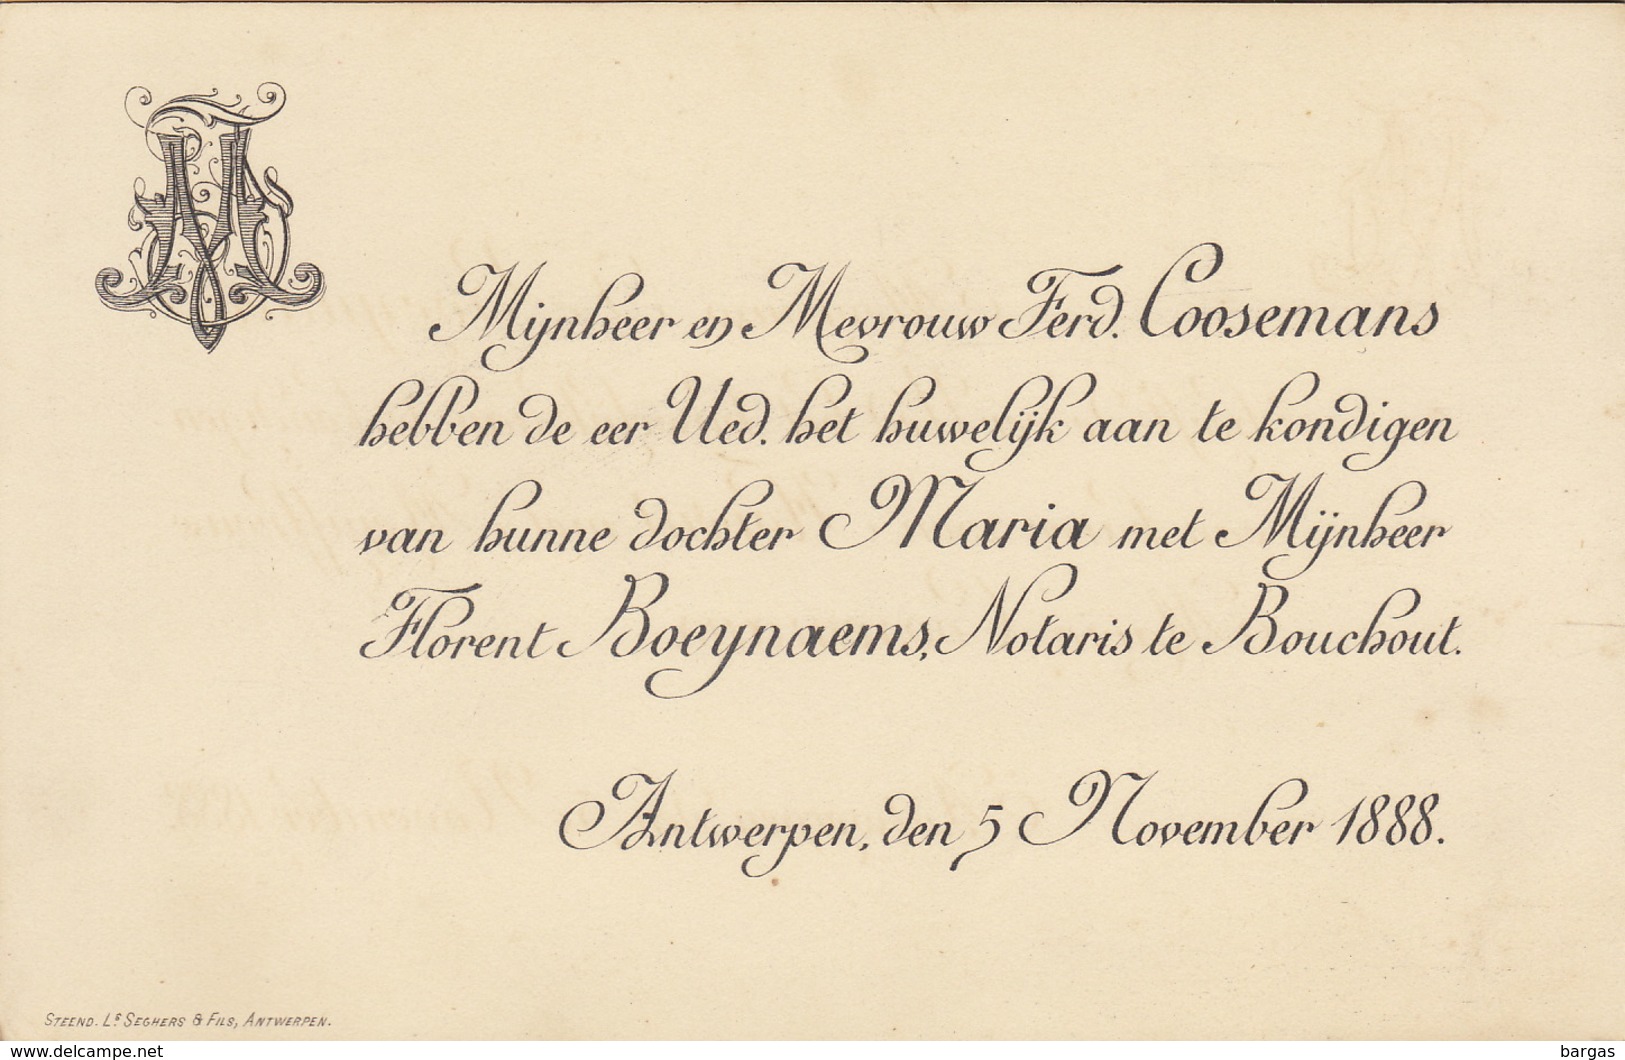 Mijnheer en Mevrouw Ferd. Coosemans
hebben de eer Ued. het huwelijk aan te kondigen
van hunne dochter Maria met Mijnheer
Florent Boeynaems, Notaris te Bouchout.
Antwerpen, den 5 November 1888.
STEEND. Ls SEGHERS & FILS, ANTWERPEN.
www.delcampe.net
bargas